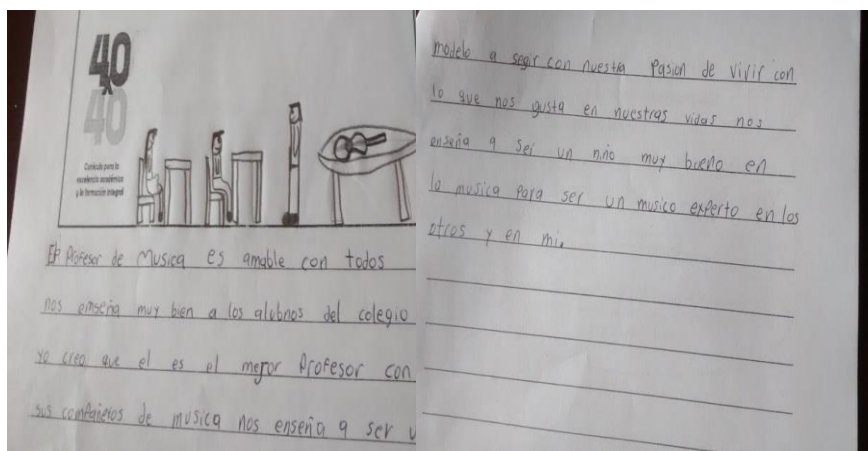 40
x
40
Currículo para la
excelencia académica
y la formación integral
El Profesor de Musica es amable con todos
nos emseña muy bien a los alubnos del colegio
yo creo que el es el mejor Profesor con
sus compañeros de musica nos enseña a ser u
modelo a segir con nuestra Pasion de vivir con
lo que nos gusta en nuestras vidas nos
enseña a ser un niño muy bueno en
la musica para ser un musico experto en los
otros y en mi.